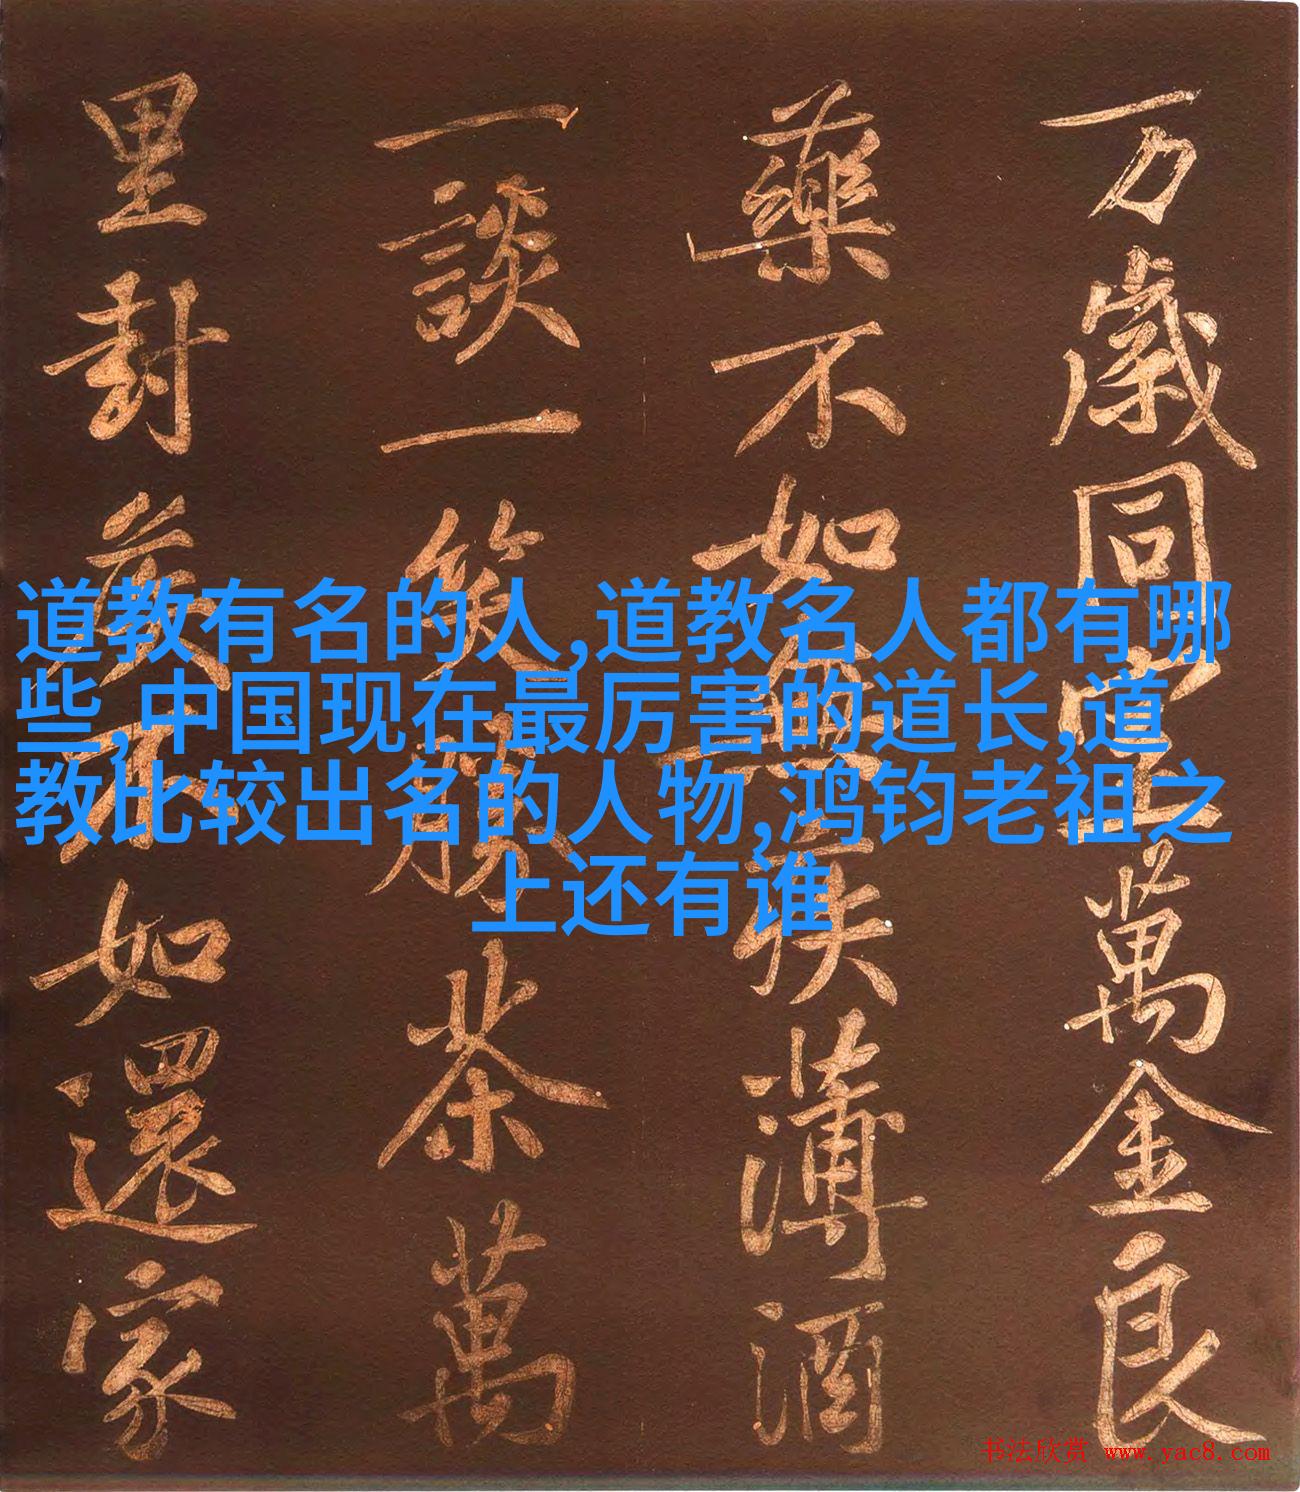 万歲同室萬金良
藥不如無疾薄酒
一談一笑勝茶萬
里封侯不如還家
道教有名的人,道教名人都有哪
些,中国现在最厉害的道长,道
教比较出名的人物,鸿钧老祖之
上还有谁
书法欣赏 www.yac8.com